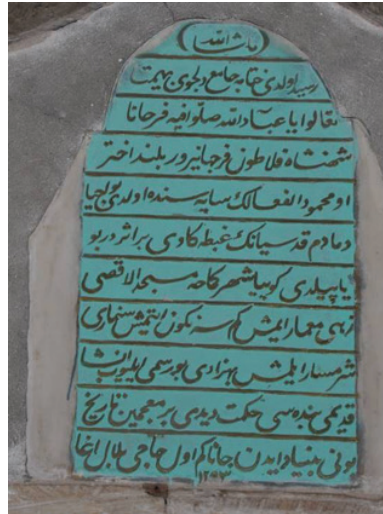 ماشاالله
رسیده اولدی ختابه جامع دلجوی بیهمت
تعالوا یا عباد الله صلوا فیه فرحانا
شهنشاه فلاطون فر جانپرور بلند اختر
او محمود الفعالک سایه سنده اولدی بو احیا
دمادم قدسیانک غبطه کاوی بر اثر در بو
یاپیلدی کوییا شهر کاحه مسجد الاقصی
زهی معمار ایمش کم سنه کون ایتمیش سنماری
شرمسار ایلمش بهزادی بو رسمی ایلیوب انشا
قدیمی بنده سی حکمت دیدی بر معجمین تاریخ
بونی بنیاد ایدن جانا کم اول حاجی بلال اغا
۱۲۴۳